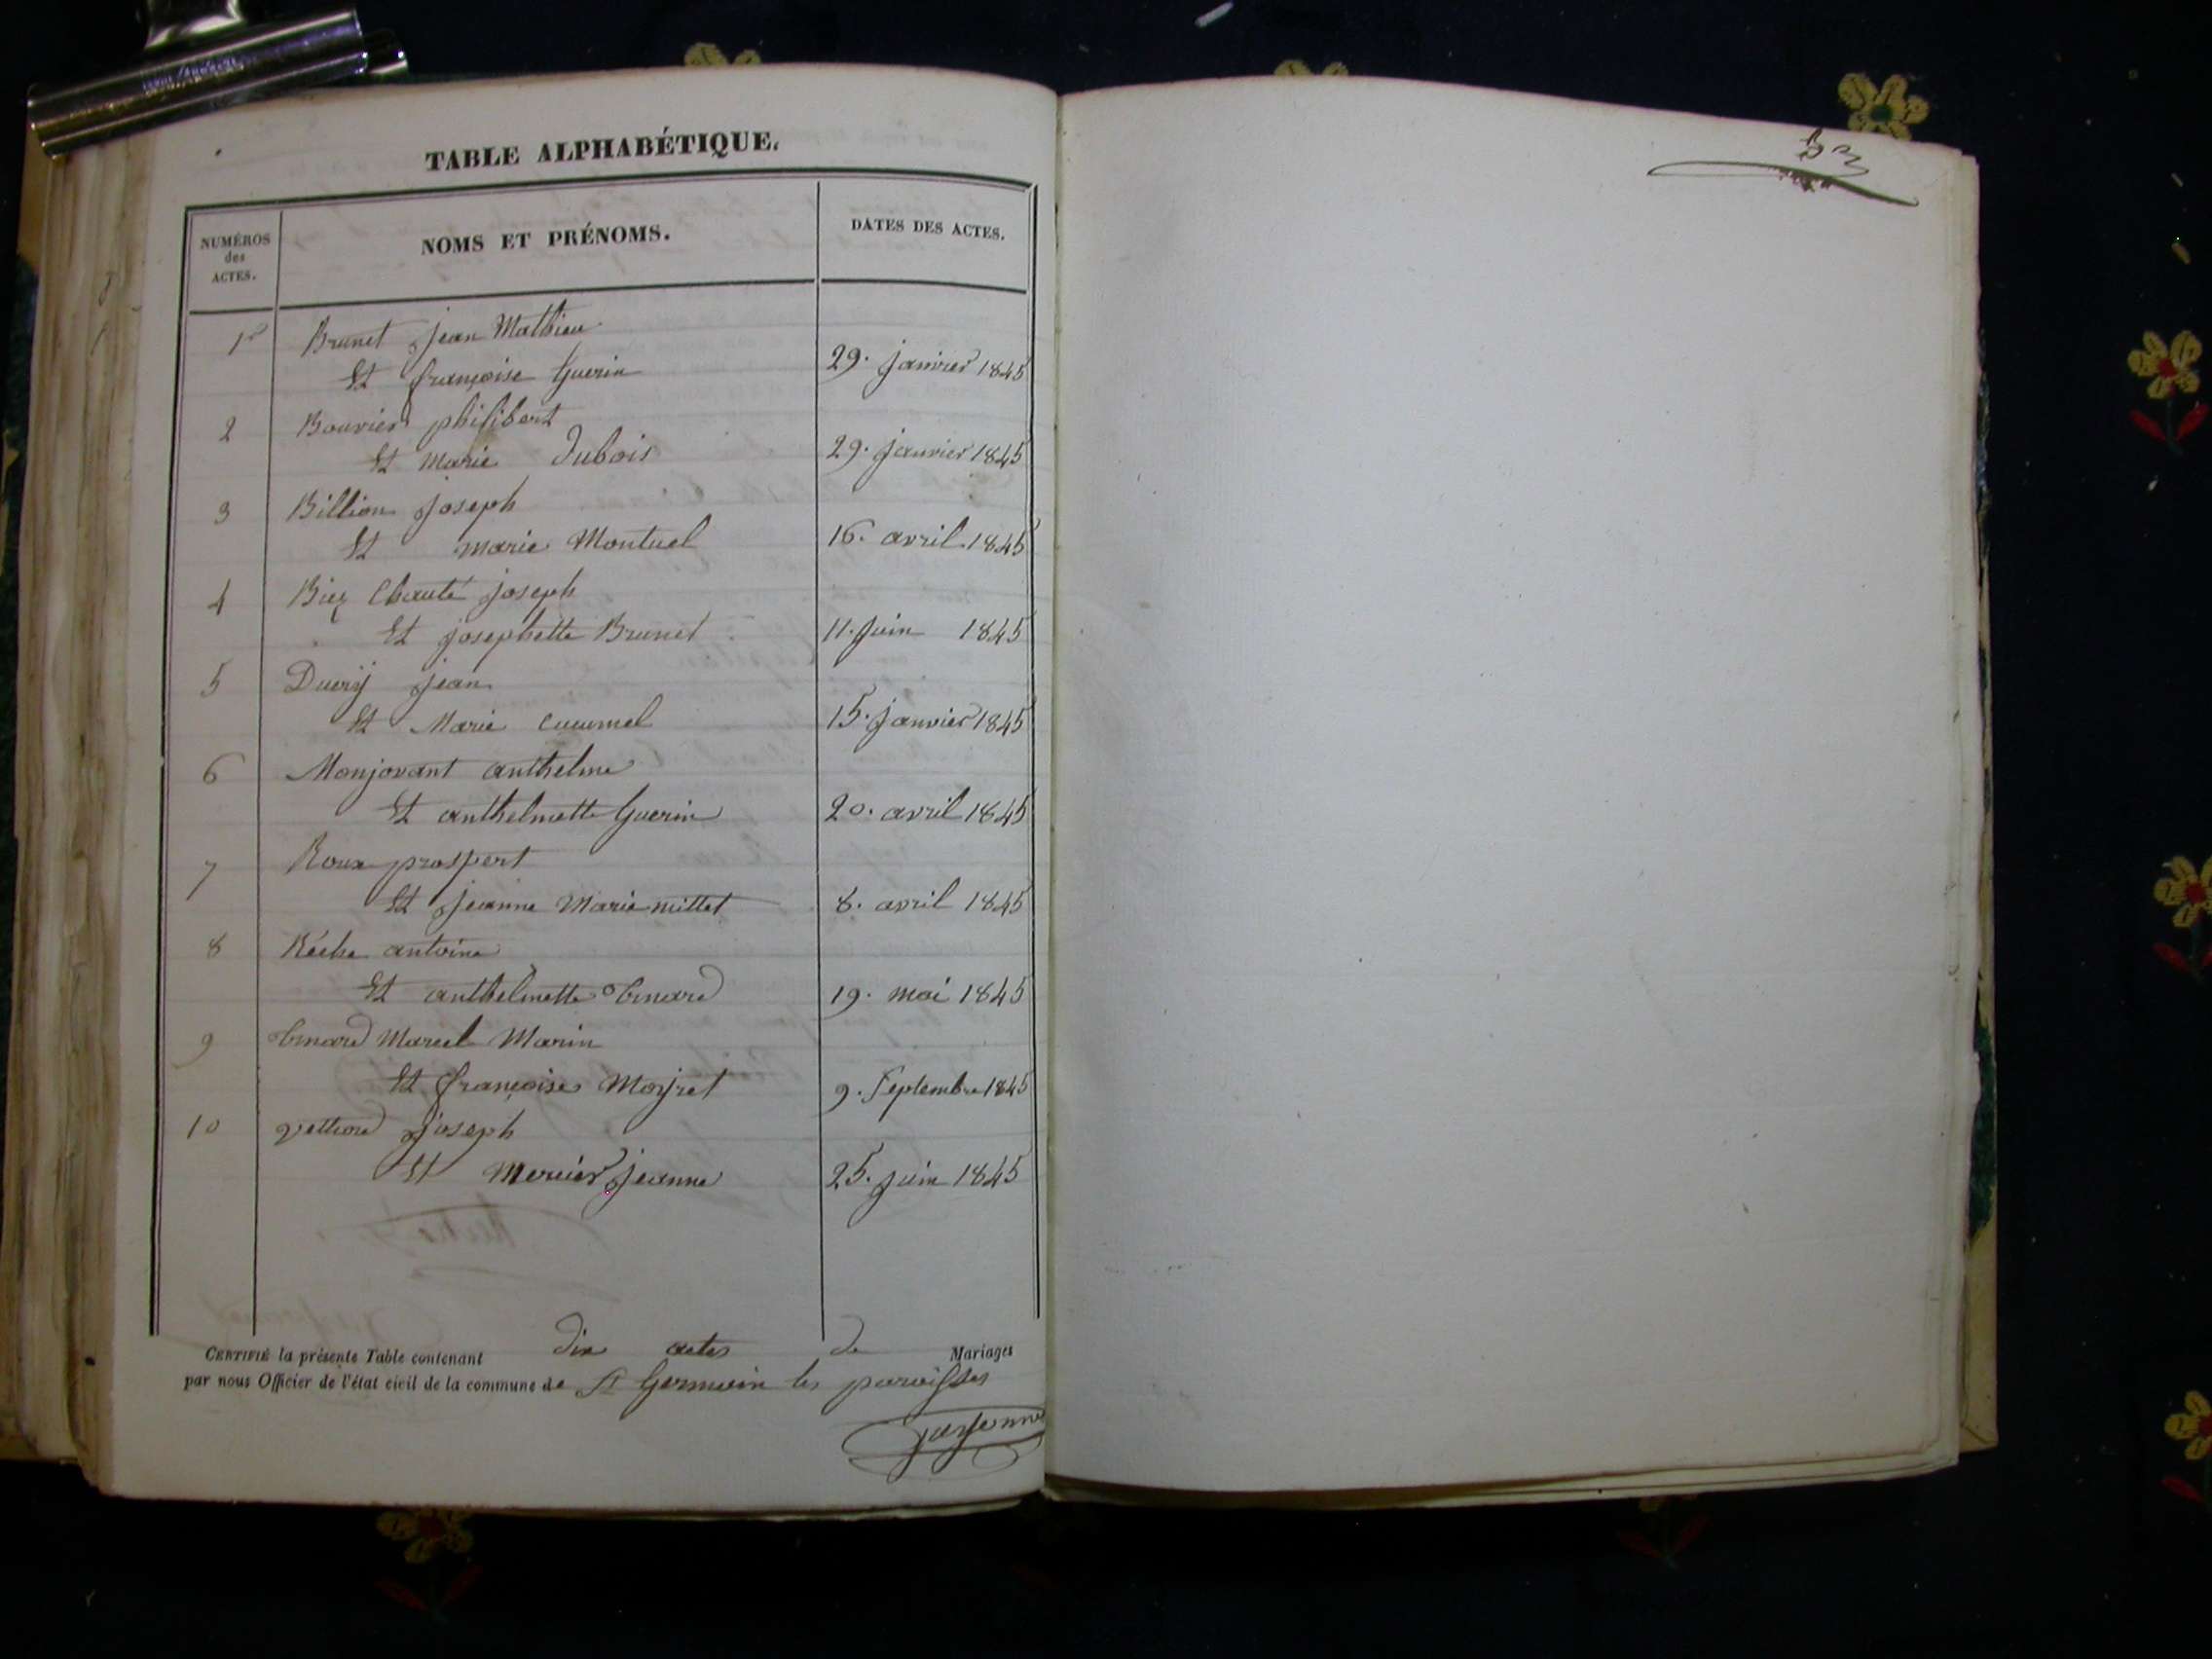 TABLE ALPHABÉTIQUE.
NUMÉROS des ACTES.
NOMS ET PRÉNOMS.
DATES DES ACTES.
1er Brunet Jean Mathieu
Et françoise Guerin 29. Janvier 1845
2 Bouvier philibert
Et Marie Dubois 29. Janvier 1845
3 Billion Joseph
Et marie Montuel 16. avril 1845
4 Joseph
Et Josephette Brunet 11. Juin 1845
5 Jean
Et Marie Cucumel 15. Janvier 1845
6 Monjovant anthelme
Et anthelmette Guerin 20. avril 1845
7 Roux prospert
Et Jeanne Marie mittet 8. avril 1845
8 antoine
Et anthelmette 19. mai 1845
9 Marcel Marin
Et françoise 9. Septembre 1845
10 Joseph
Et Mercier Jeanne 25. Juin 1845
CERTIFIÉ la présente Table contenant dix actes de Mariages
par nous Officier de l'état civil de la commune de St Germain les paroisses
52